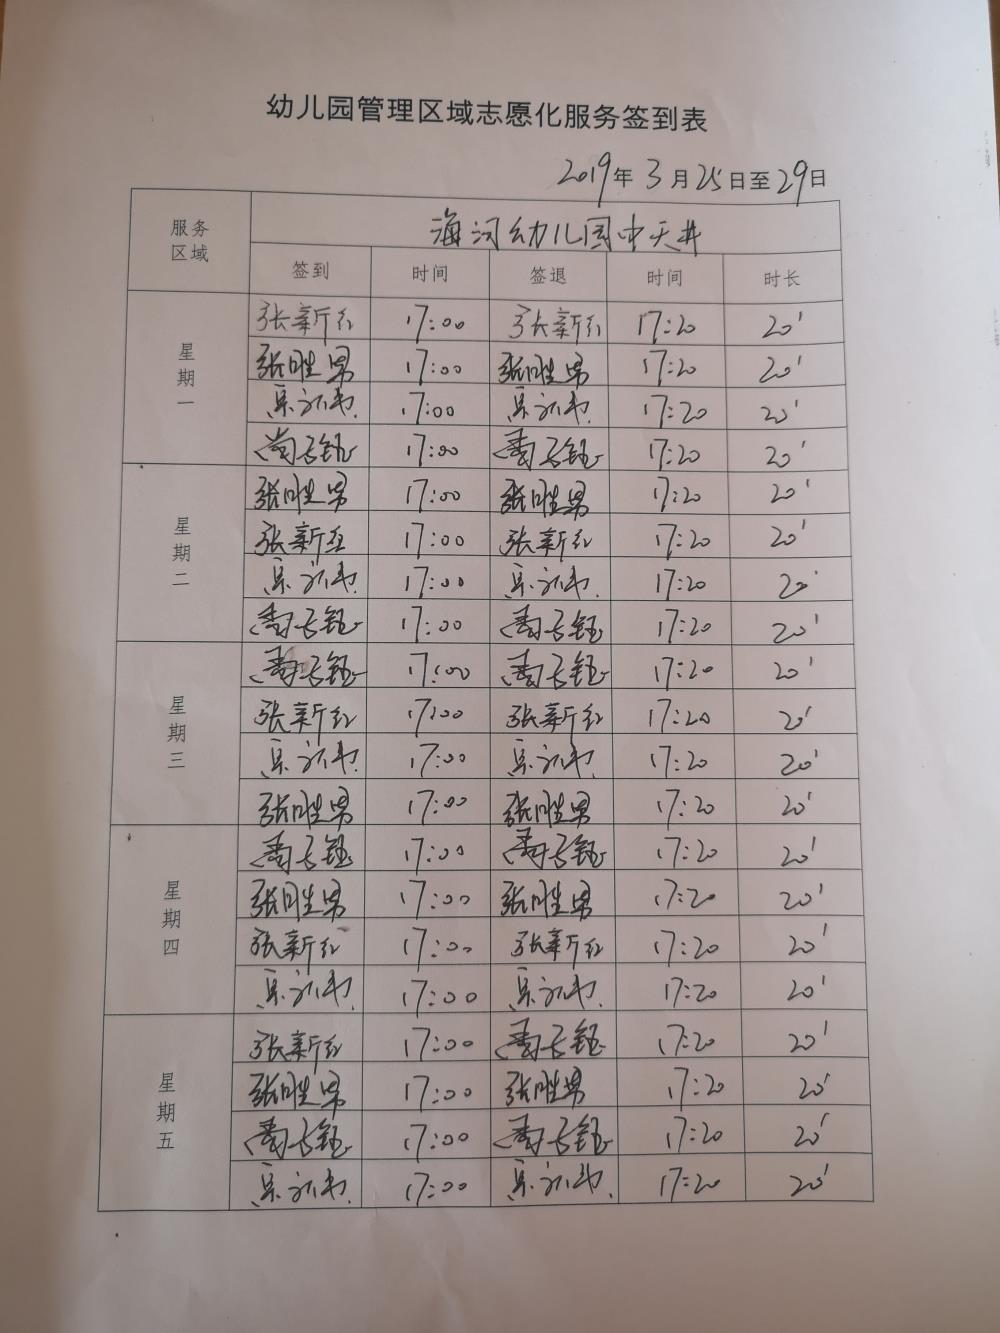 幼儿园管理区域志愿化服务签到表
2019年3月25日至29日
服务区域 海河幼儿园中天井
签到 时间 签退 时间 时长
星期一
张新红 17:00 张新红 17:20 20'
张胜男 17:00 张胜男 17:20 20'
17:00 17:20 20'
17:00 17:20 20'
星期二
张胜男 17:00 张胜男 17:20 20'
张新红 17:00 张新红 17:20 20'
17:00 17:20 20'
17:00 17:20 20'
星期三
17:00 17:20 20'
张新红 17:00 张新红 17:20 20'
17:00 17:20 20'
张胜男 17:00 张胜男 17:20 20'
星期四
17:00 17:20 20'
张胜男 17:00 张胜男 17:20 20'
张新红 17:00 张新红 17:20 20'
17:00 17:20 20'
星期五
张新红 17:00 17:20 20'
张胜男 17:00 张胜男 17:20 20'
17:00 17:20 20'
17:00 17:20 20'